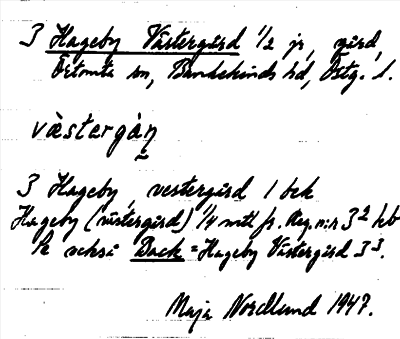 3 Hageby Västergård ½ jr, gård,
Örtomta sn, Bankekinds hd, Östg. l.
västergàņ
3 Hageby, vestergård 1 bek
Hageby (västergård) 1/4 mtl fr. Reg.n:r 3² kb
Se också Back = Hageby Västergård 3³.
Maja Nordlund 1947.